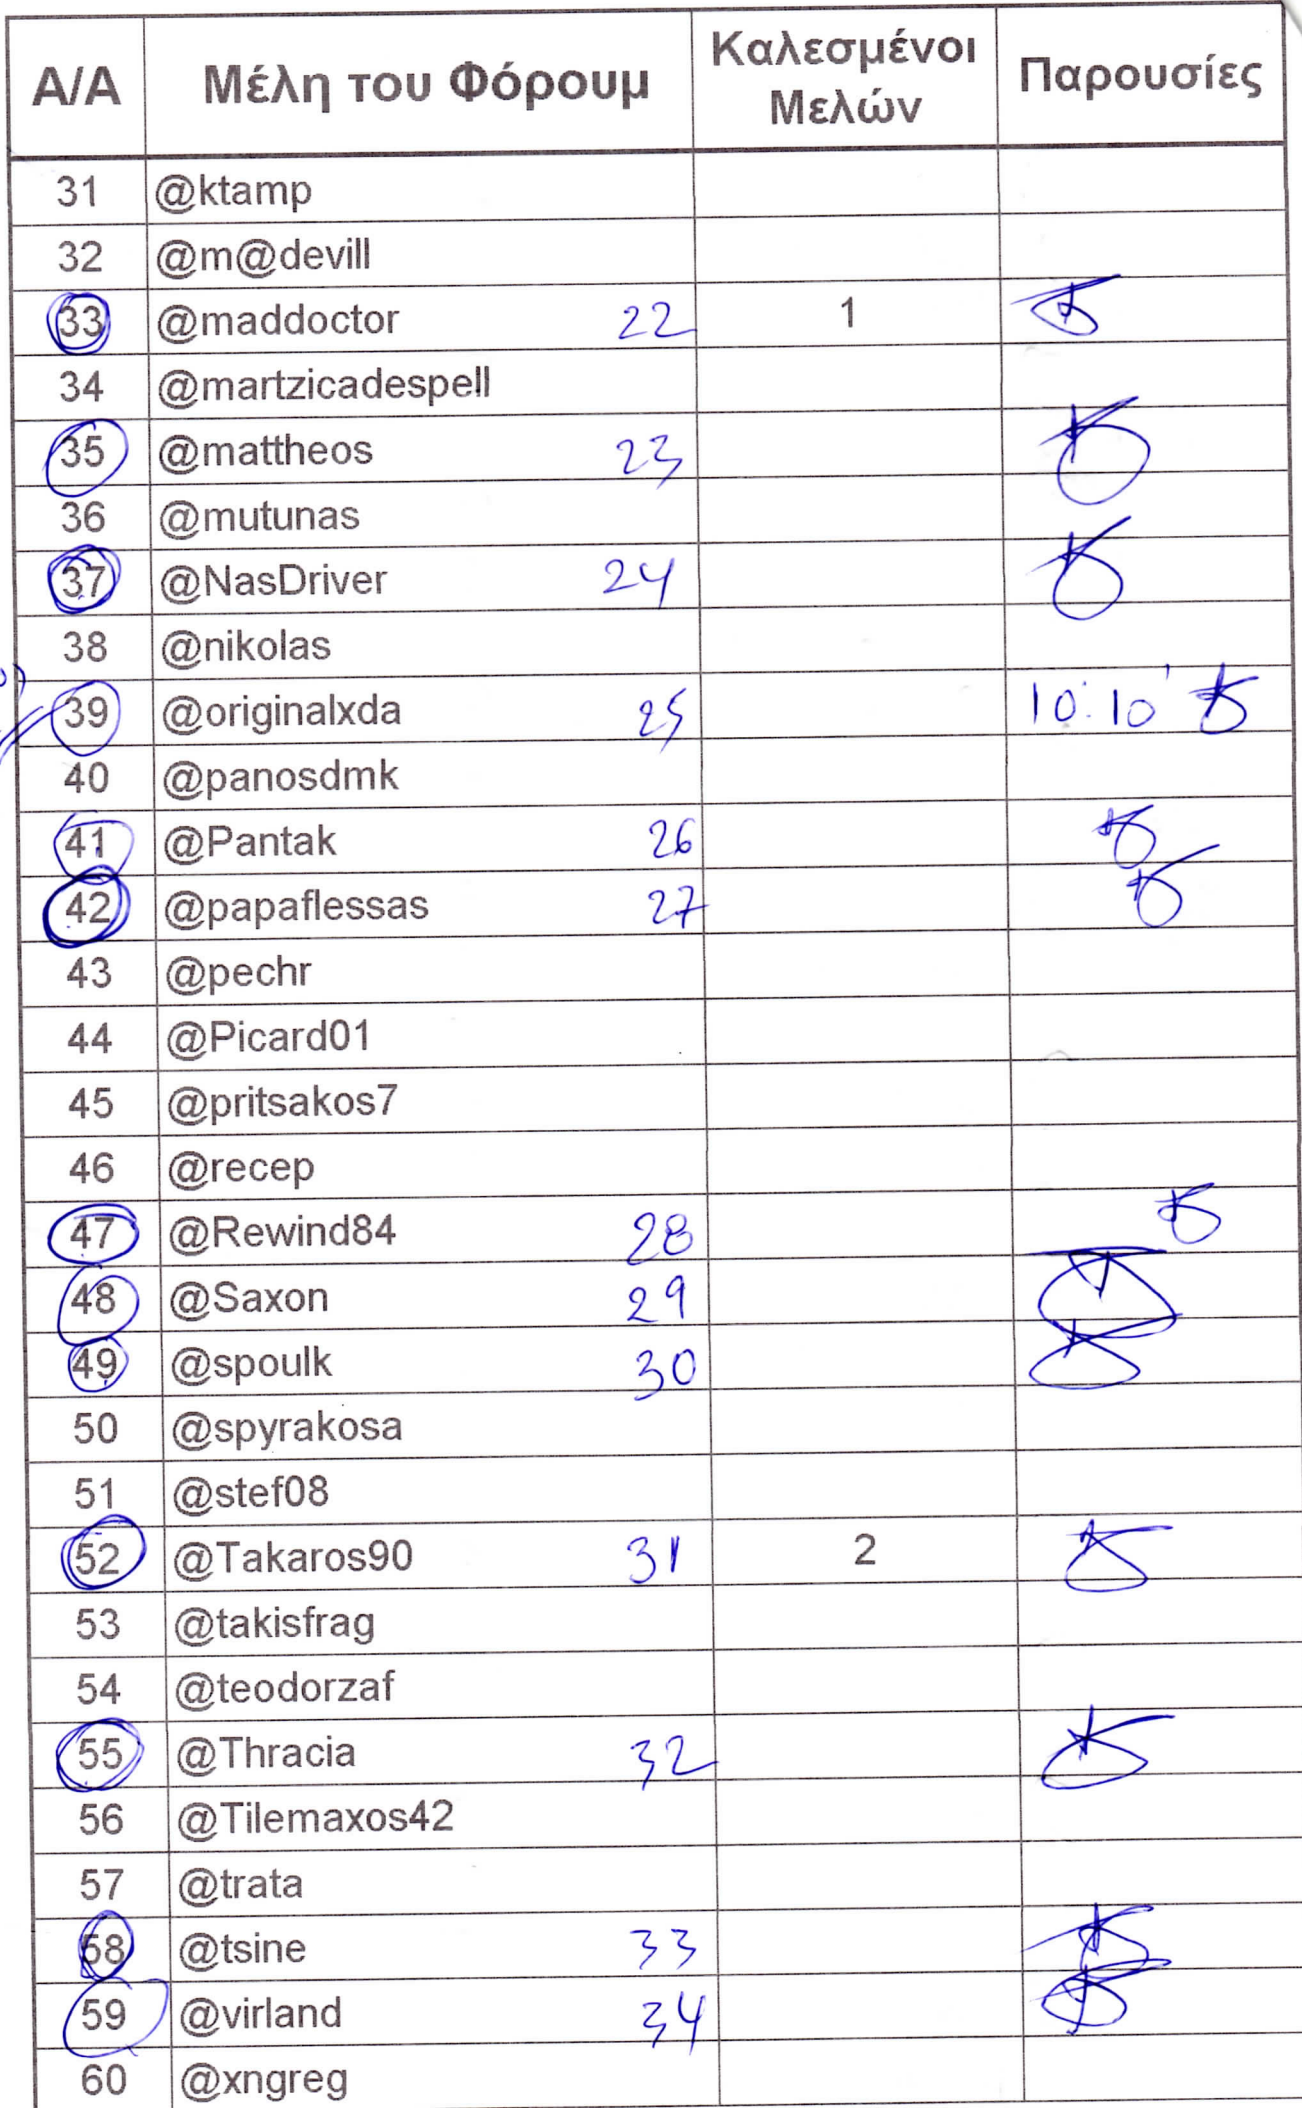 Α/Α Μέλη του Φόρουμ Καλεσμένοι Μελών Παρουσίες
31 @ktamp
32 @m@devill
33 @maddoctor 22 1
34 @martzicadespell
35 @mattheos 23
36 @mutunas
37 @NasDriver 24
38 @nikolas
39 @originalxda 25 10:10'
40 @panosdmk
41 @Pantak 26
42 @papaflessas 27
43 @pechr
44 @Picard01
45 @pritsakos7
46 @recep
47 @Rewind84 28
48 @Saxon 29
49 @spoulk 30
50 @spyrakosa
51 @stef08
52 @Takaros90 31 2
53 @takisfrag
54 @teodorzaf
55 @Thracia 32
56 @Tilemaxos42
57 @trata
58 @tsine 33
59 @virland 34
60 @xngreg